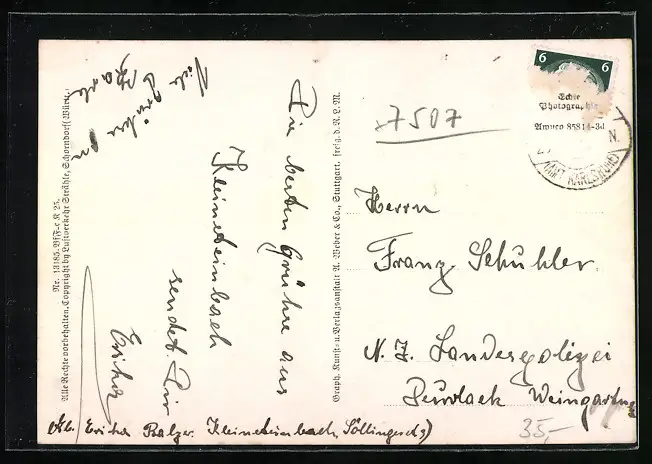 Die besten Grühse aus
Kleinsteinbach
sendet Dir
Erika
Viele Grüße an
Abs. Erika Balzer. Kleinsteinbach, Söllingerstr. 3)
Nr. 13185. Bf/F-r. K 25.
Alle Rechte vorbehalten. Copyright by Luftverkehr Strähle, Schorndorf Württ.
Graph. Kunst- u. Verlagsanstalt A. Weber & Co., Stuttgart. freig. d. R. L. M.
7507
6 6
Echte
Photographie
Amveo 85814-3d
N.
(AMT KARLSRUHE)
Herrn
Franz Schuhler.
N. Z. Landespolizei
Durlach Weingarten
35,-